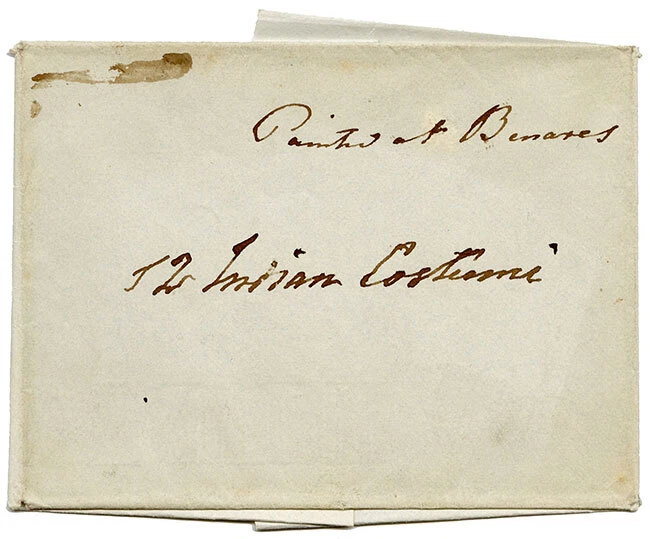 Painted at Benares
12 Indian Costumi